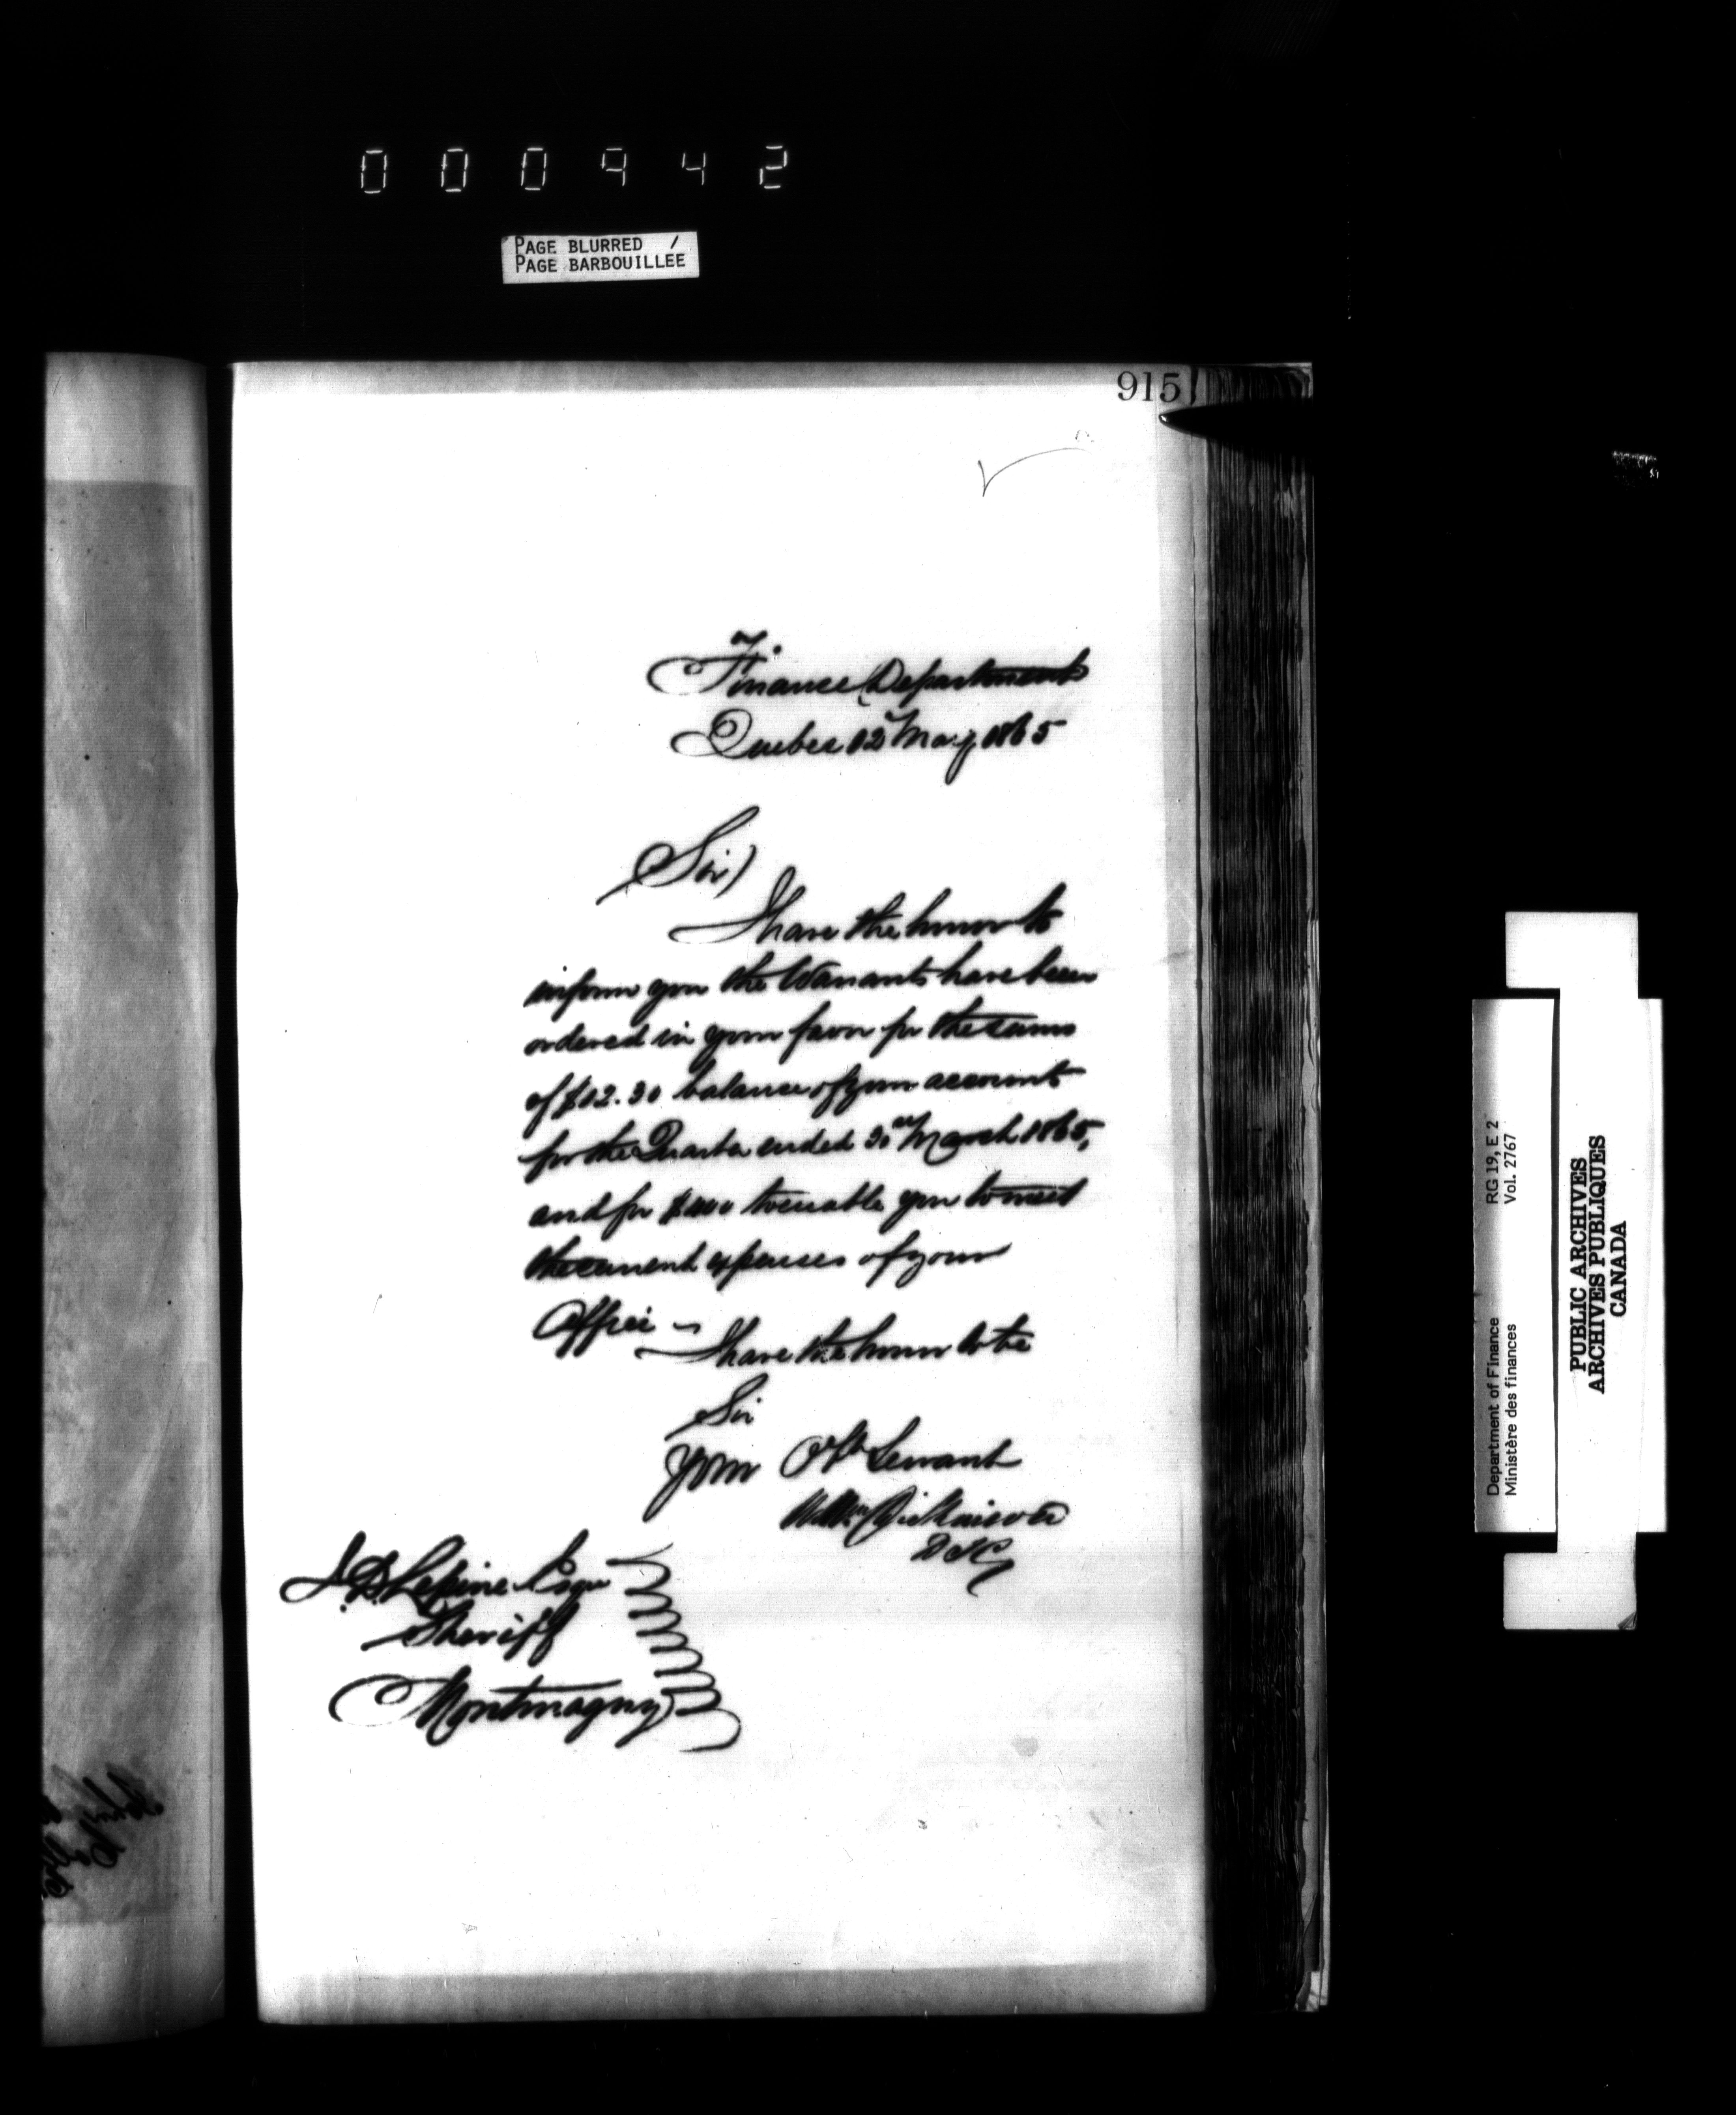 000942
PAGE BLURRED /
PAGE BARBOUILLEE
915
Finance Department
Quebec 12 May 1865
Sir,
I have the honor to
inform you the Warrants have been
ordered in your favor for the sums
of $12.30 balance of your account
for the Quarter ended March 1865,
and for $400 to enable you to meet
the current expenses of your
Office –
I have the honor to be
Sir
Your Obt Servant
Wm Dickinson
D I G
Lepine Esqre
Sheriff
Montmagny
Department of Finance RG 19, E 2
Ministère des finances Vol. 2767
PUBLIC ARCHIVES
ARCHIVES PUBLIQUES
CANADA